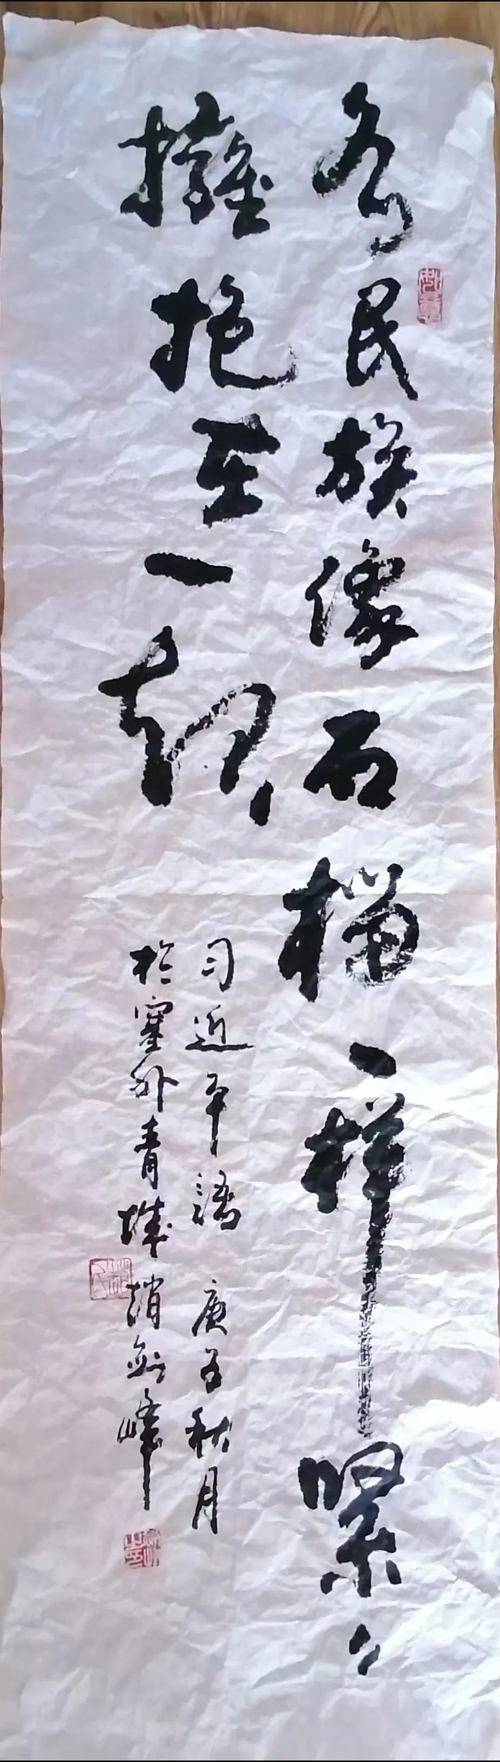 各民族像石榴一样緊々
擁抱在一起
习近平語 庚子秋月
於塞外青城 趙剑峰